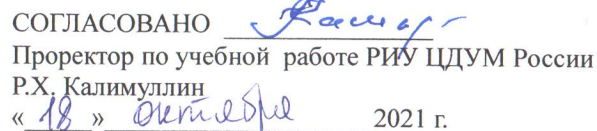 СОГЛАСОВАНО
Проректор по учебной работе РИУ ЦДУМ России
Р.Х. Калимуллин
« 18 » октября 2021 г.